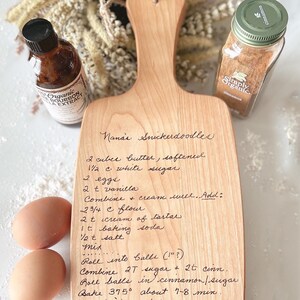 Organic
EXTRACT
Simply
Organic
Nana's Snickerdoodles
2 cubes butter, softened
1½ c white sugar
2 eggs
2 t vanilla
Combine & cream well. Add:
2¾ c flour
2 t cream of tartar
1 t baking soda
½ t salt
Mix
Roll into balls (1")
Combine 2T sugar & 2t cinn
Roll balls in cinnamon/sugar
Bake 375° about 7-8 min.